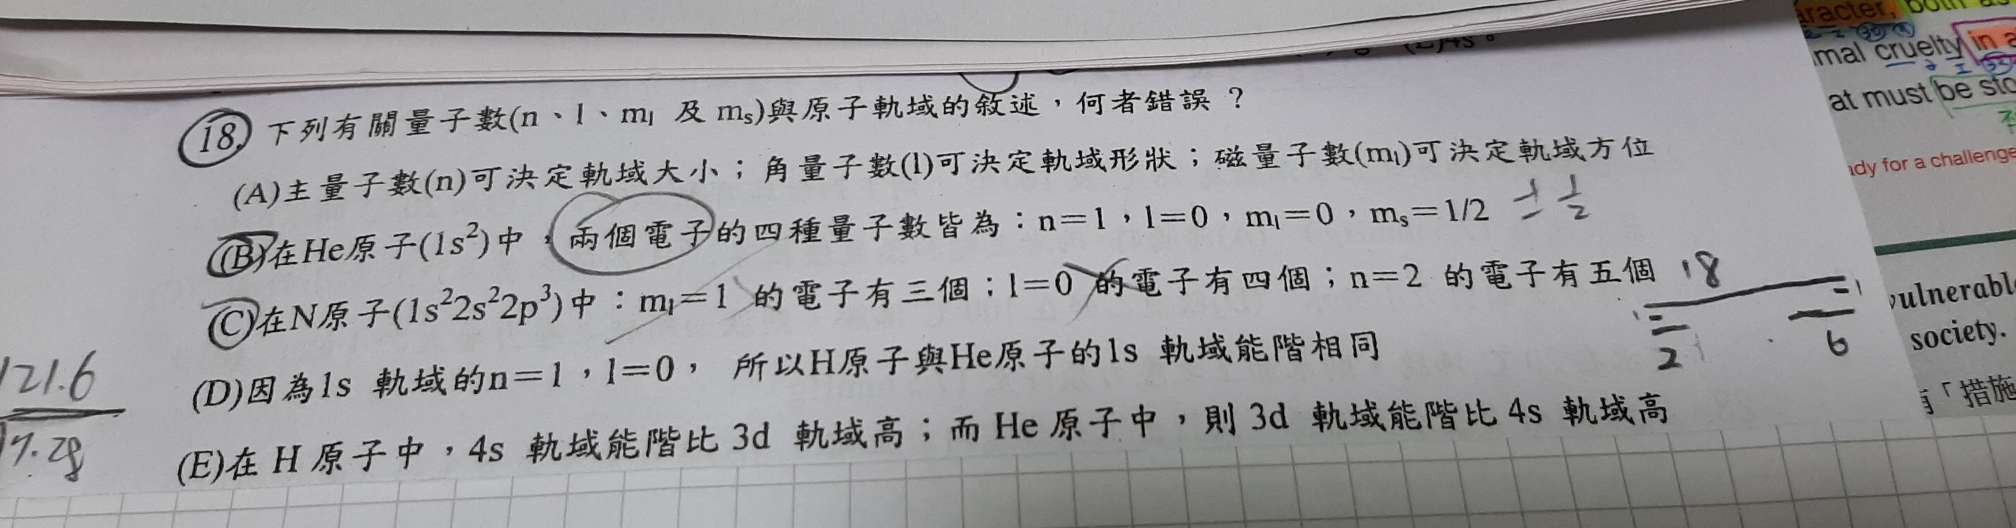 (E)4s。
18. 下列有關量子數(n、l、mₗ 及 mₛ)與原子軌域的敘述，何者錯誤？
(A)主量子數(n)可決定軌域大小；角量子數(l)可決定軌域形狀；磁量子數(mₗ)可決定軌域方位
(B)在He原子(1s²)中，兩個電子的四種量子數皆為：n=1，l=0，mₗ=0，mₛ=1/2
(C)在N原子(1s²2s²2p³)中：mₗ=1 的電子有三個；l=0 的電子有四個；n=2 的電子有五個
(D)因為1s 軌域的n=1，l=0， 所以H原子與He原子的1s 軌域能階相同
(E)在 H 原子中，4s 軌域能階比 3d 軌域高；而 He 原子中，則 3d 軌域能階比 4s 軌域高
18
2
6
121.6
racter, both as
mal cruelty in a
at must be sto
dy for a challenge
vulnerabl
society.
「措施